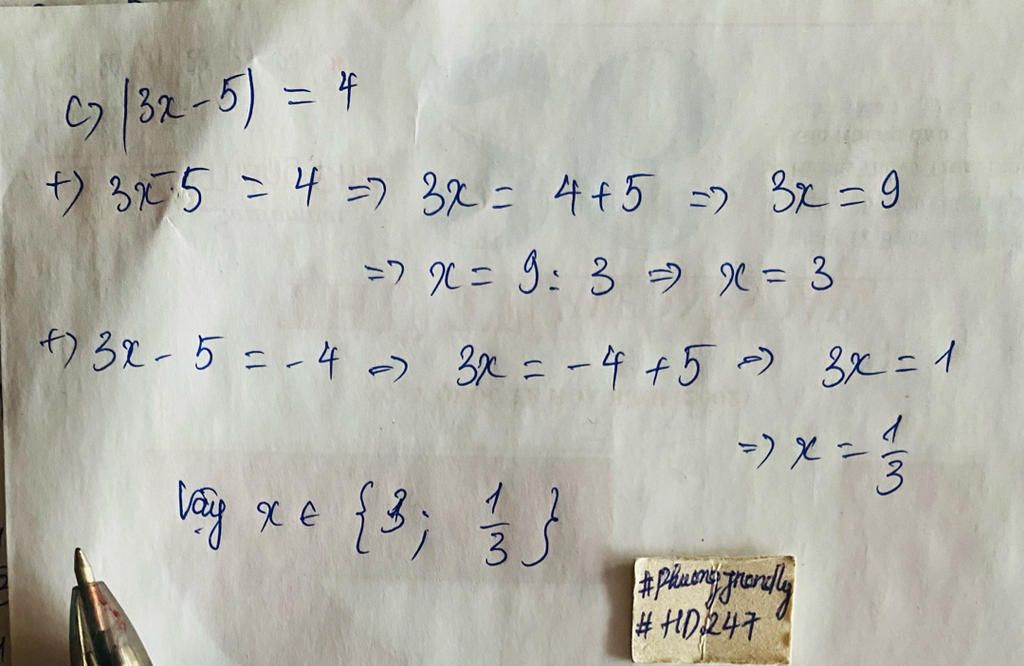 c) |3x - 5| = 4
+) 3x - 5 = 4 => 3x = 4 + 5 => 3x = 9
=> x = 9 : 3 => x = 3
+) 3x - 5 = -4 => 3x = -4 + 5 => 3x = 1
=> x = 1/3
Vậy x ∈ {3; 1/3}
#Phuong
#HD247